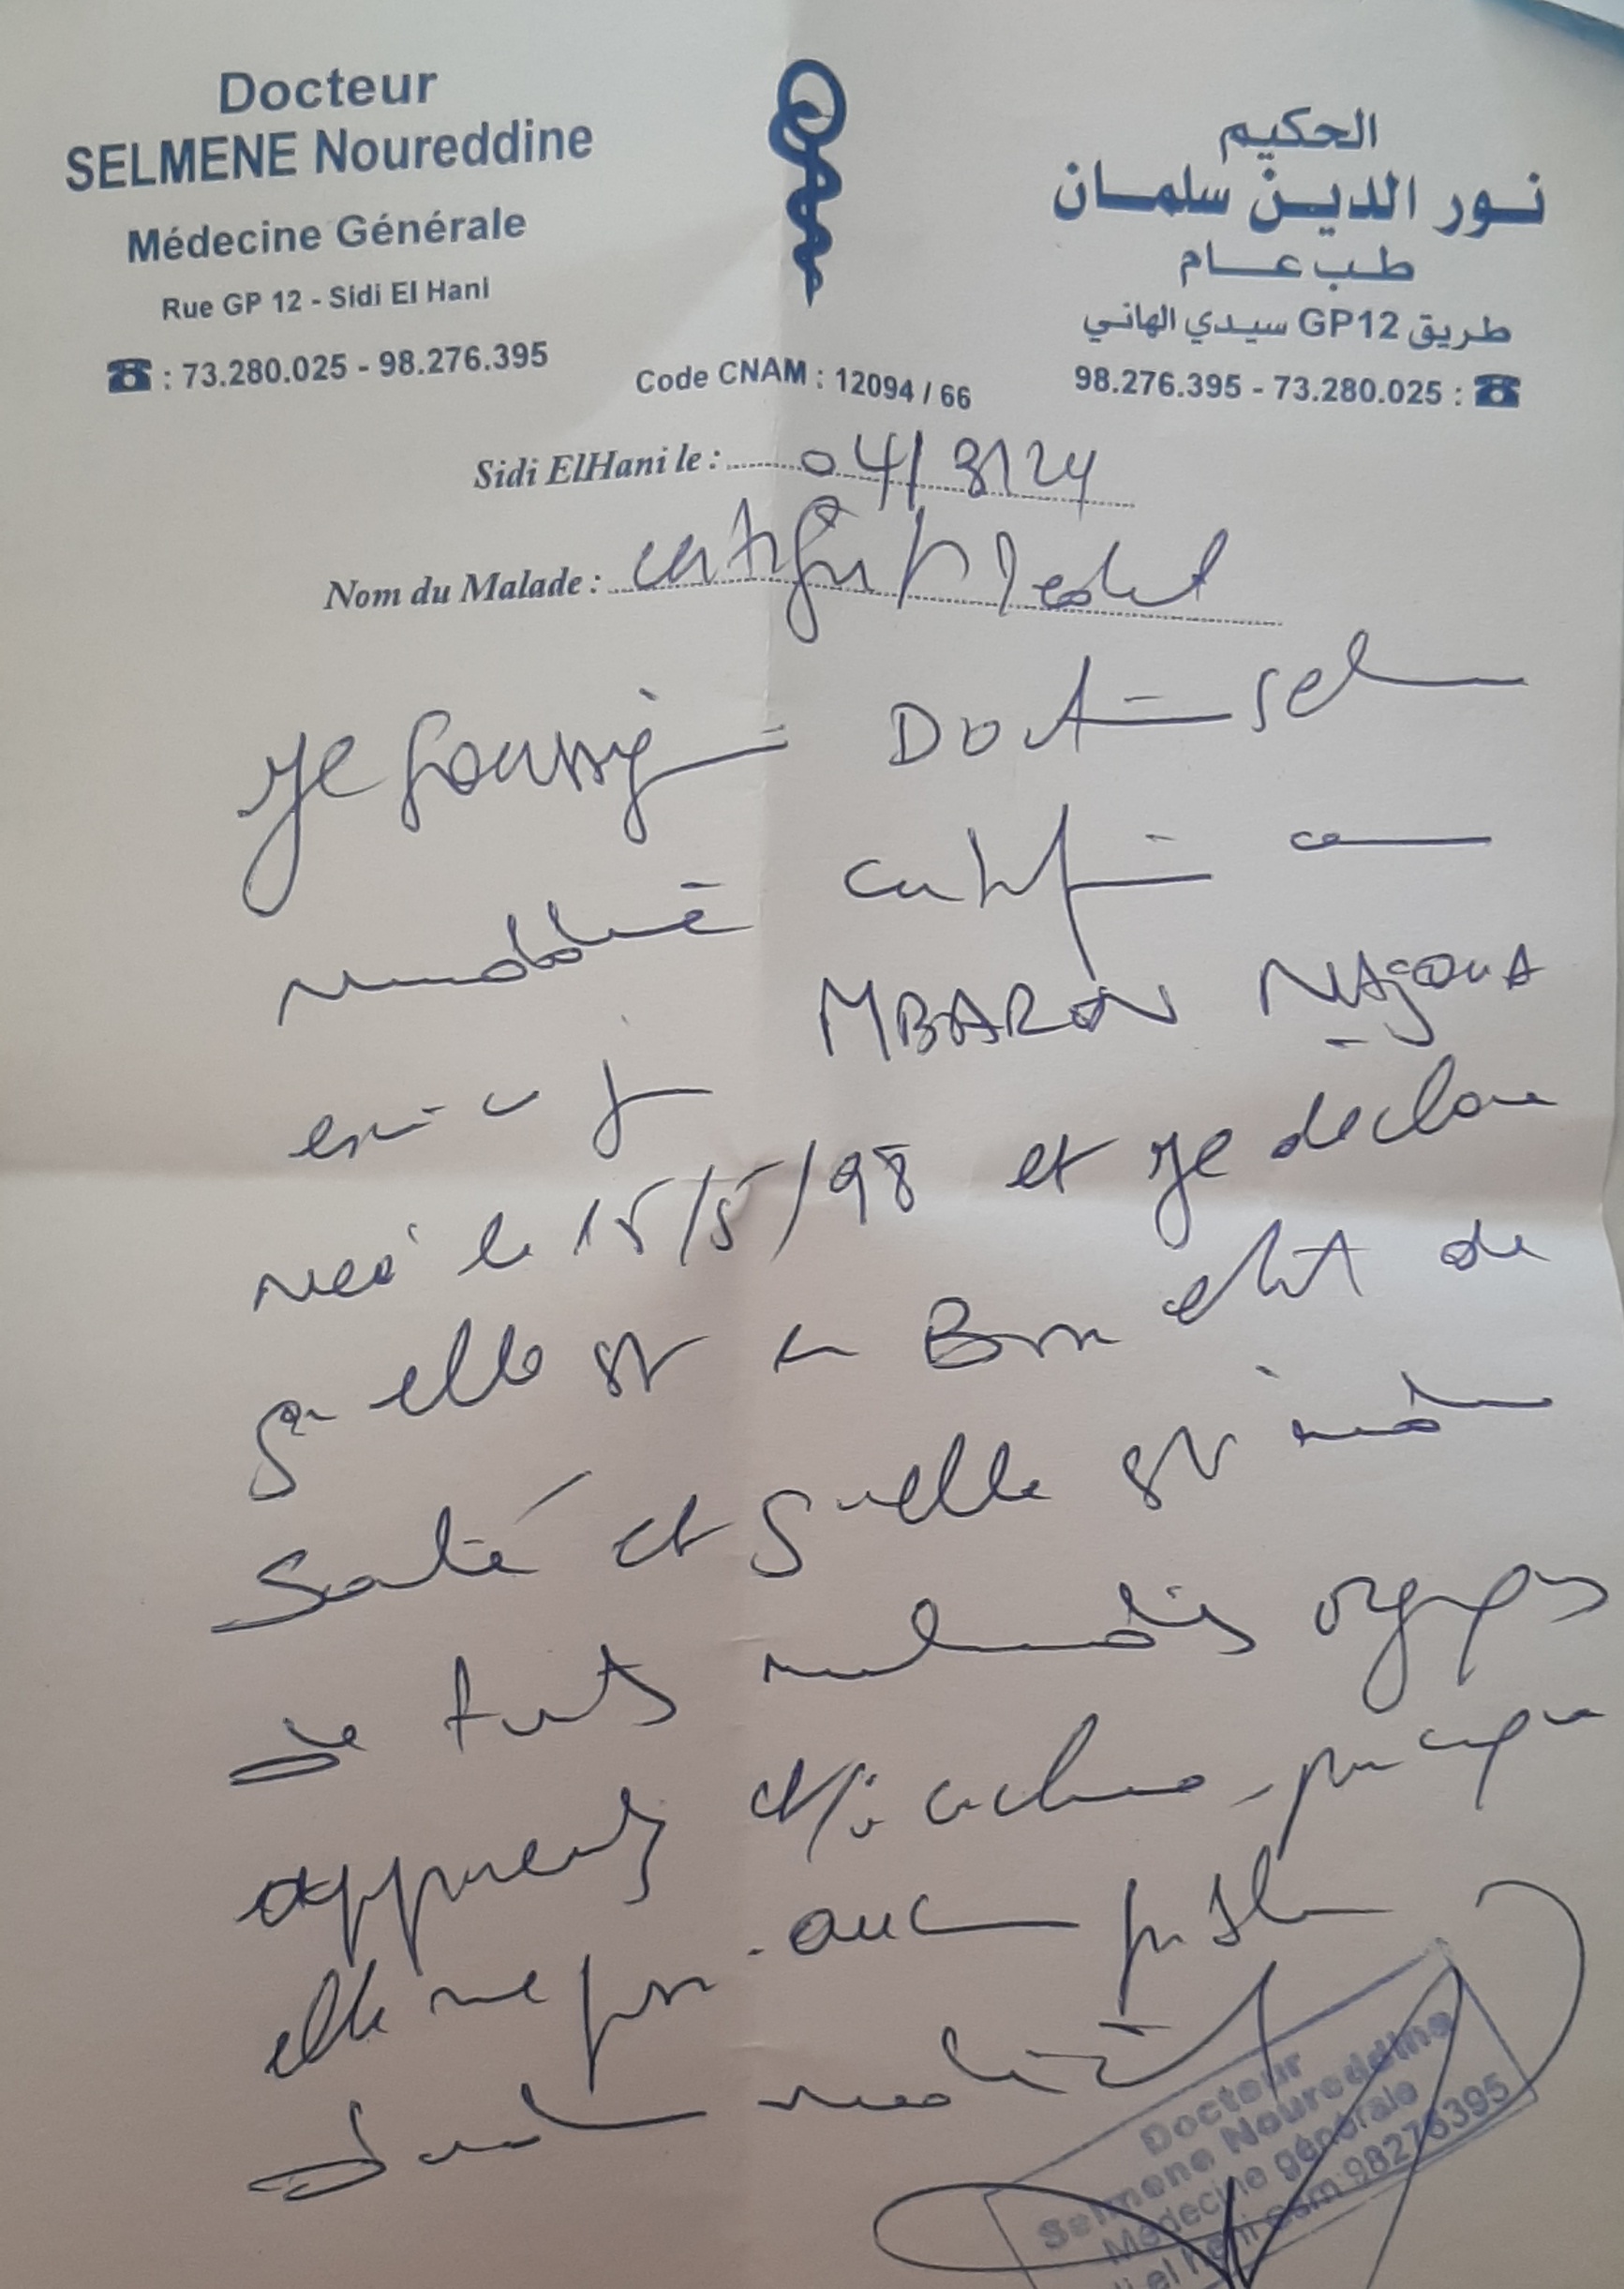 Docteur
SELMENE Noureddine
Médecine Générale
Rue GP 12 - Sidi El Hani
☎ : 73.280.025 - 98.276.395
الحكيم
نور الدين سلمان
طب عام
طريق GP12 سيدي الهاني
98.276.395 - 73.280.025 : ☎
Code CNAM : 12094 / 66
Sidi ElHani le : 04/3/24
Nom du Malade : certificat Medical
Je soussigné Docteur Selmene
Noureddine certifie
MBAROU NAJOUA
née le 15/5/98 et je declare
qu'elle est en Bon etat de
Santé et qu'elle est
de toutes maladies organiques
apparentes et
elle ne aucun probleme
Docteur
Selmene Noureddine
Médecine générale
el heni Gsm 98276395